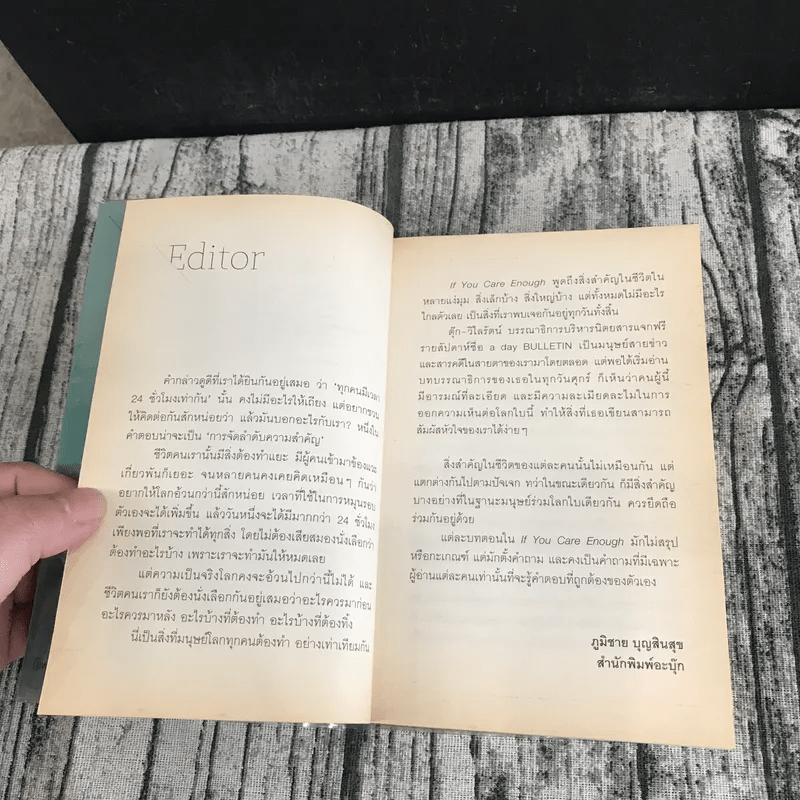 Editor
คำกล่าวดูดีที่เราได้ยินกันอยู่เสมอ ว่า 'ทุกคนมีเวลา
24 ชั่วโมงเท่ากัน' นั้น คงไม่มีอะไรให้เถียง แต่อยากชวน
ให้คิดต่อกันสักหน่อยว่า แล้วมันบอกอะไรกับเรา? หนึ่งใน
คำตอบน่าจะเป็น 'การจัดลำดับความสำคัญ'
ชีวิตคนเรานั้นมีสิ่งต้องทำแยะ มีผู้คนเข้ามาข้องแวะ
เกี่ยวพันก็เยอะ จนหลายคนคงเคยคิดเหมือนๆ กันว่า
อยากให้โลกอ้วนกว่านี้สักหน่อย เวลาที่ใช้ในการหมุนรอบ
ตัวเองจะได้เพิ่มขึ้น แล้ววันหนึ่งจะได้มีมากกว่า 24 ชั่วโมง
เพียงพอที่เราจะทำได้ทุกสิ่ง โดยไม่ต้องเสียสมองนั่งเลือกว่า
ต้องทำอะไรบ้าง เพราะเราจะทำมันให้หมดเลย
แต่ความเป็นจริงโลกคงจะอ้วนไปกว่านี้ไม่ได้ และ
ชีวิตคนเราก็ยังต้องนั่งเลือกกันอยู่เสมอว่าอะไรควรมาก่อน
อะไรควรมาหลัง อะไรบ้างที่ต้องทำ อะไรบ้างที่ต้องทิ้ง
นี่เป็นสิ่งที่มนุษย์โลกทุกคนต้องทำ อย่างเท่าเทียมกัน
If You Care Enough พูดถึงสิ่งสำคัญในชีวิตใน
หลายแง่มุม สิ่งเล็กบ้าง สิ่งใหญ่บ้าง แต่ทั้งหมดไม่มีอะไร
ไกลตัวเลย เป็นสิ่งที่เราพบเจอกันอยู่ทุกวันทั้งสิ้น
ตุ๊ก-วิไลรัตน์ บรรณาธิการบริหารนิตยสารแจกฟรี
รายสัปดาห์ชื่อ a day BULLETIN เป็นมนุษย์สายข่าว
และสารคดีในสายตาของเรามาโดยตลอด แต่พอได้เริ่มอ่าน
บทบรรณาธิการของเธอในทุกวันศุกร์ ก็เห็นว่าคนผู้นี้
มีอารมณ์ที่ละเอียด และมีความละเมียดละไมในการ
ออกความเห็นต่อโลกใบนี้ ทำให้สิ่งที่เธอเขียนสามารถ
สัมผัสหัวใจของเราได้ง่ายๆ
สิ่งสำคัญในชีวิตของแต่ละคนนั้นไม่เหมือนกัน แต่
แตกต่างกันไปตามปัจเจก ทว่าในขณะเดียวกัน ก็มีสิ่งสำคัญ
บางอย่างที่ในฐานะมนุษย์ร่วมโลกใบเดียวกัน ควรยึดถือ
ร่วมกันอยู่ด้วย
แต่ละบทตอนใน If You Care Enough มักไม่สรุป
หรือกะเกณฑ์ แต่มักตั้งคำถาม และคงเป็นคำถามที่มีเฉพาะ
ผู้อ่านแต่ละคนเท่านั้นที่จะรู้คำตอบที่ถูกต้องของตัวเอง
ภูมิชาย บุญสินสุข
สำนักพิมพ์อะบุ๊ก